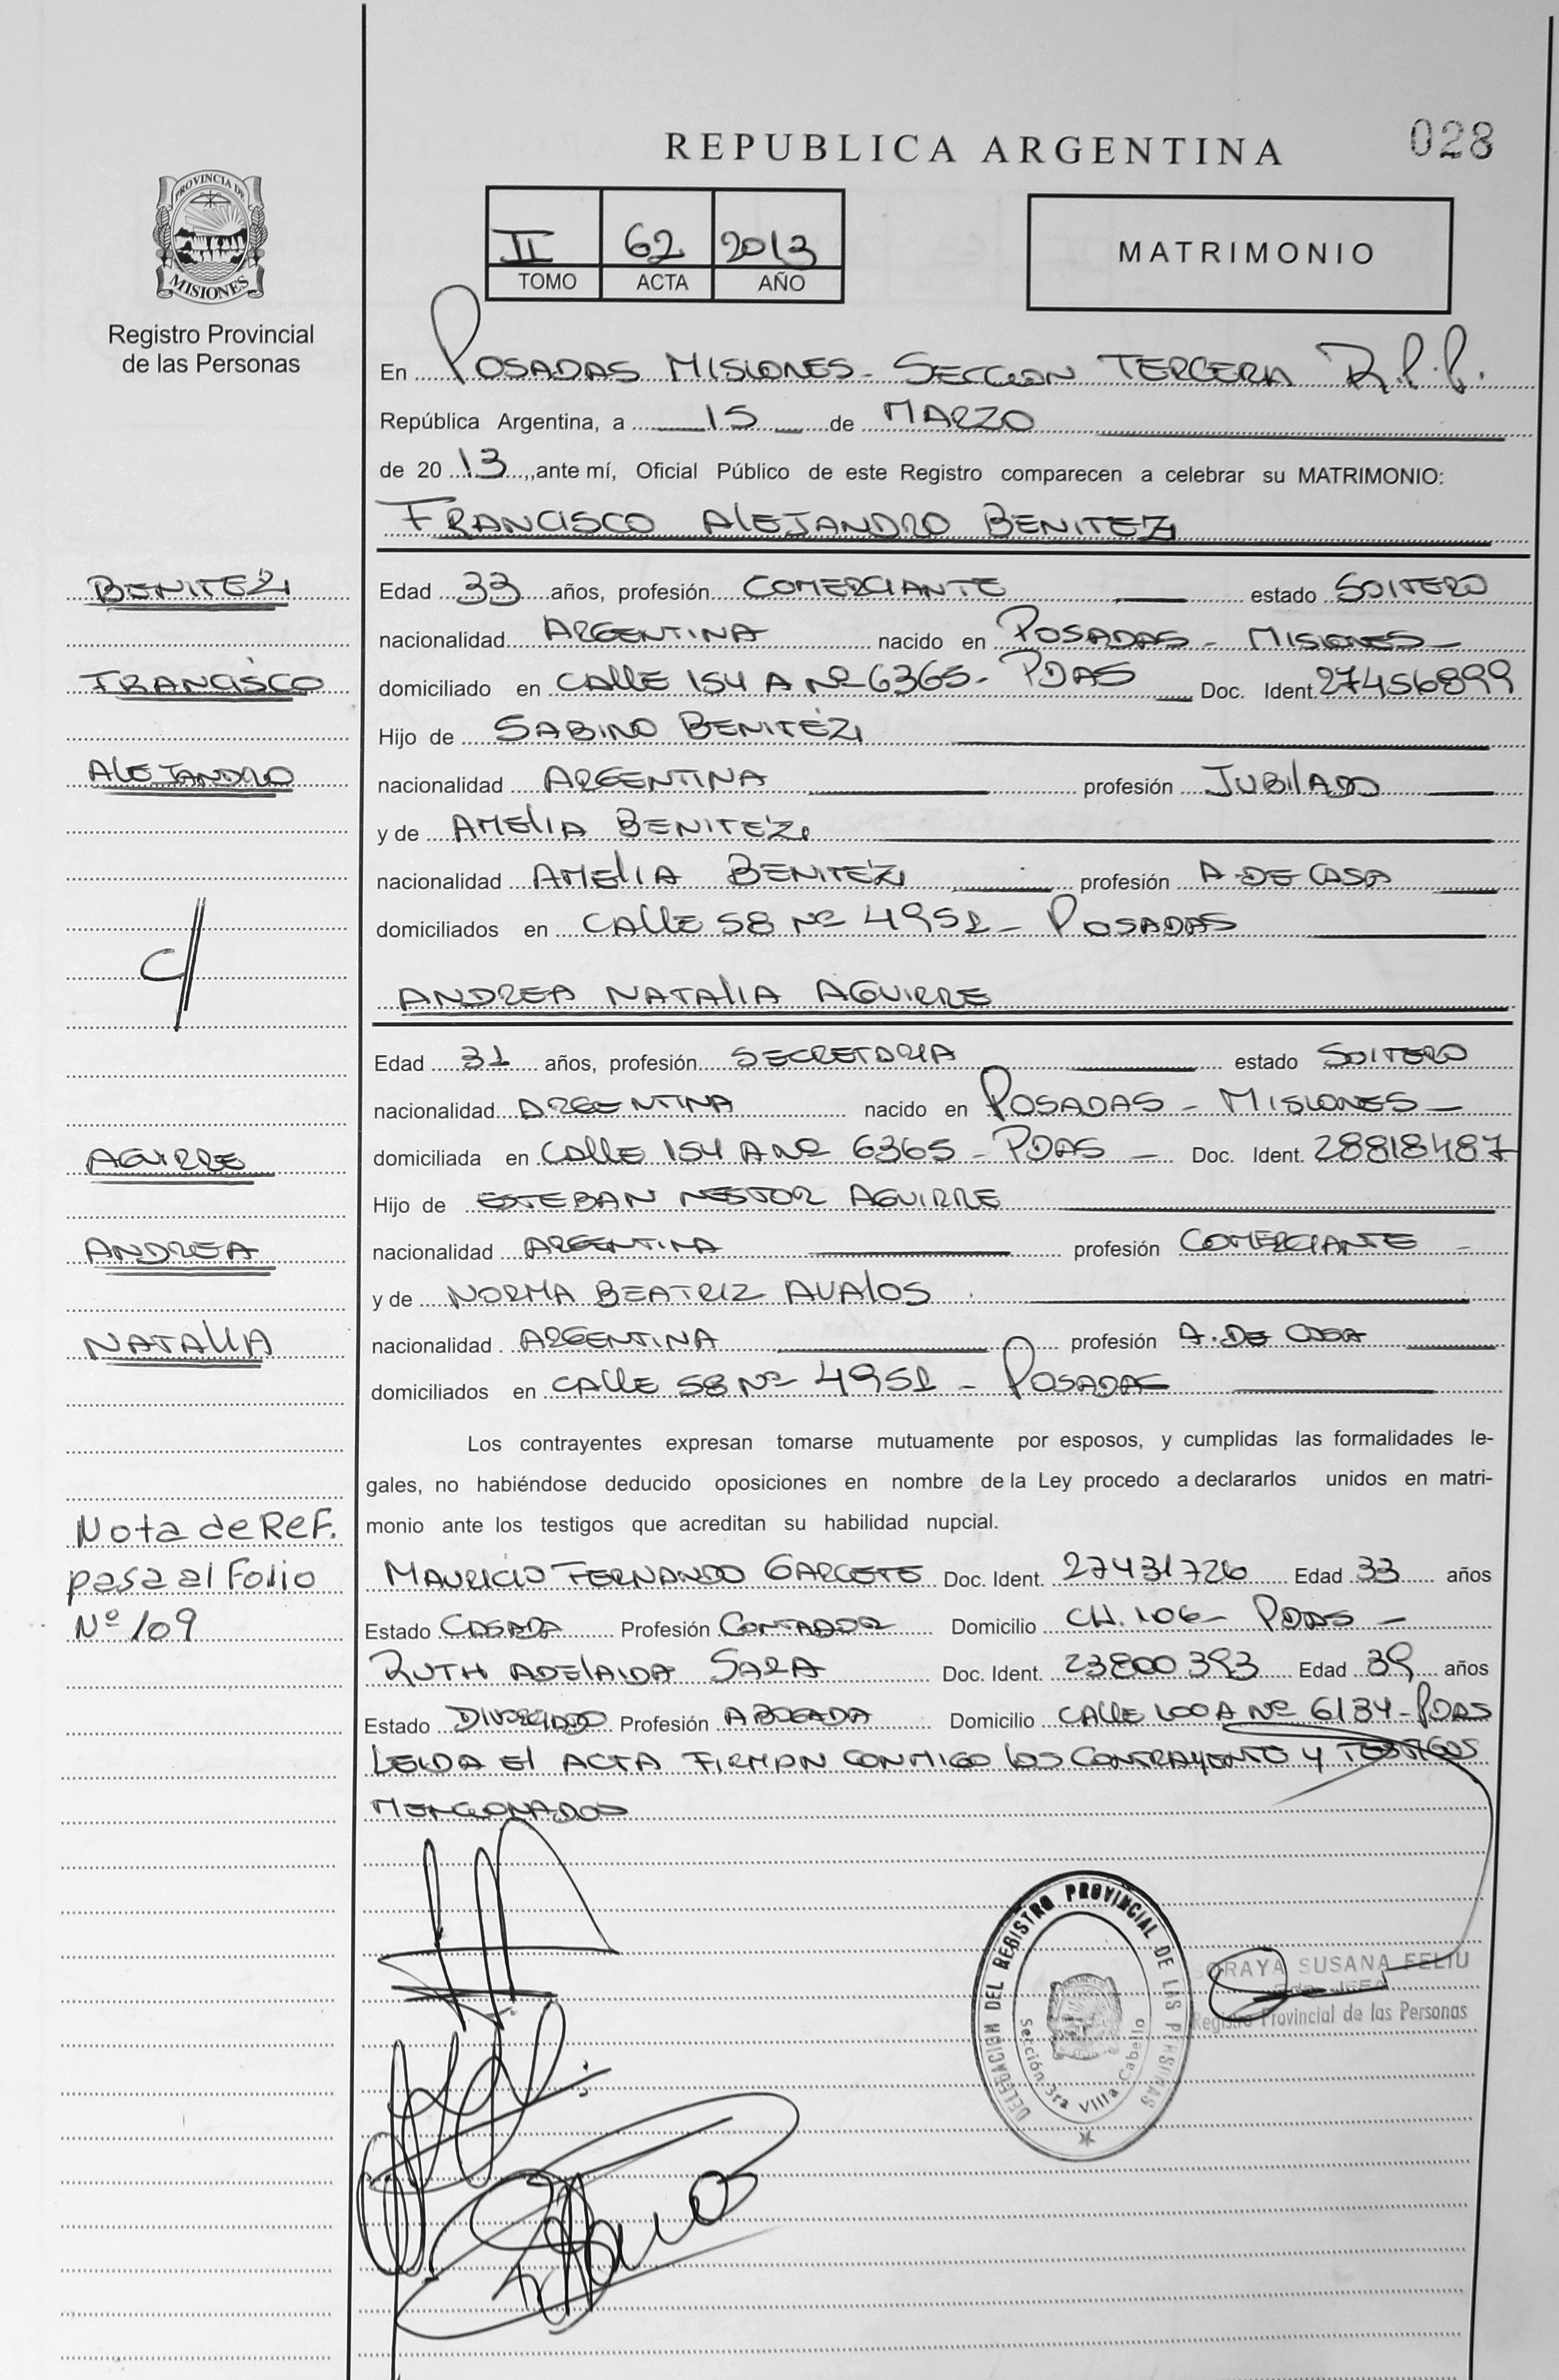 REPUBLICA ARGENTINA
028
PROVINCIA DE
MISIONES
Registro Provincial
de las Personas
II 62 2013
TOMO ACTA AÑO
MATRIMONIO
En POSADAS MISIONES - SECCION TERCERA R.P.P.
República Argentina, a 15 de MARZO
de 20 13, ante mí, Oficial Público de este Registro comparecen a celebrar su MATRIMONIO:
FRANCISCO ALEJANDRO BENITEZ
BENITEZ
FRANCISCO
ALEJANDRO
Edad 33 años, profesión COMERCIANTE estado SOLTERO
nacionalidad ARGENTINA nacido en POSADAS - MISIONES -
domiciliado en CALLE 154 A Nº 6365 - PDAS Doc. Ident. 27456899
Hijo de SABINO BENITEZ
nacionalidad ARGENTINA profesión JUBILADO
y de AMELIA BENITEZ
nacionalidad AMELIA BENITEZ profesión A. DE CASA
domiciliados en CALLE 58 Nº 4951 - POSADAS
c/
ANDREA NATALIA AGUIRRE
Edad 31 años, profesión SECRETARIA estado SOLTERO
nacionalidad ARGENTINA nacido en POSADAS - MISIONES -
domiciliada en CALLE 154 A Nº 6365 - PDAS - Doc. Ident. 28818487
AGUIRRE
ANDREA
NATALIA
Hijo de ESTEBAN NESTOR AGUIRRE
nacionalidad ARGENTINA profesión COMERCIANTE -
y de NORMA BEATRIZ AVALOS
nacionalidad ARGENTINA profesión A. DE CASA
domiciliados en CALLE 58 Nº 4951 - POSADAS
Los contrayentes expresan tomarse mutuamente por esposos, y cumplidas las formalidades le-
gales, no habiéndose deducido oposiciones en nombre de la Ley procedo a declararlos unidos en matri-
monio ante los testigos que acreditan su habilidad nupcial.
Nota de Ref.
pasa al Folio
Nº 109
MAURICIO FERNANDO GARCETE Doc. Ident. 27431726 Edad 33 años
Estado CASADA Profesión CONTADOR Domicilio CH. 106 - PDAS -
RUTH ADELAIDA SARA Doc. Ident. 23800393 Edad 39 años
Estado DIVORCIADO Profesión ABOGADA Domicilio CALLE 100 A Nº 6134 - PDAS
LEIDA EL ACTA FIRMAN CONMIGO LOS CONTRAYENTE Y TESTIGOS
MENCIONADOS
DELEGACION DEL REGISTRO PROVINCIAL DE LAS PERSONAS
Sección 3ra Villa Cabello
SORAYA SUSANA FELIU
JEFA
Registro Provincial de las Personas